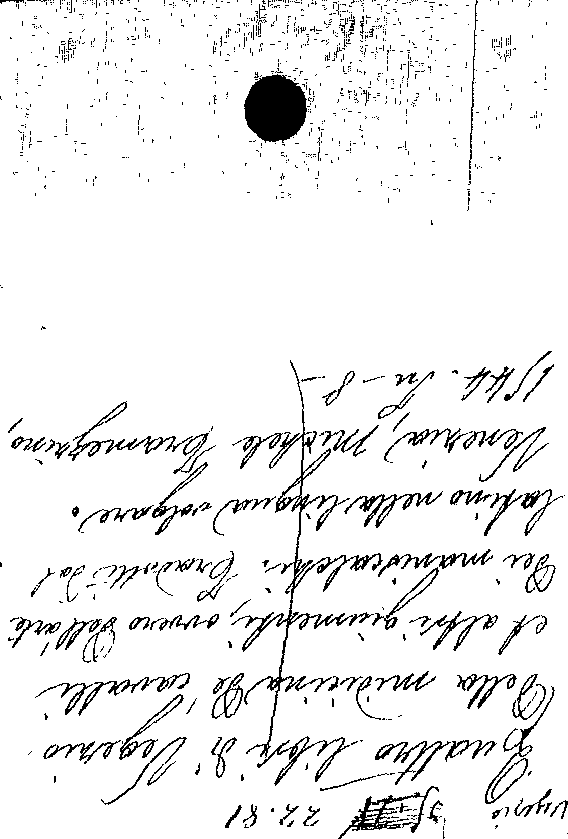 Vegezio 22.81
Quattro libri di Vegezio
Della midicina de' cavalli
et altri giumenti, ovvero dell'arte
dei maniscalchi. Tradotti dal
latino nella lingua volgare.
Venezia, Michele Tramezzino,
1544. In-8-